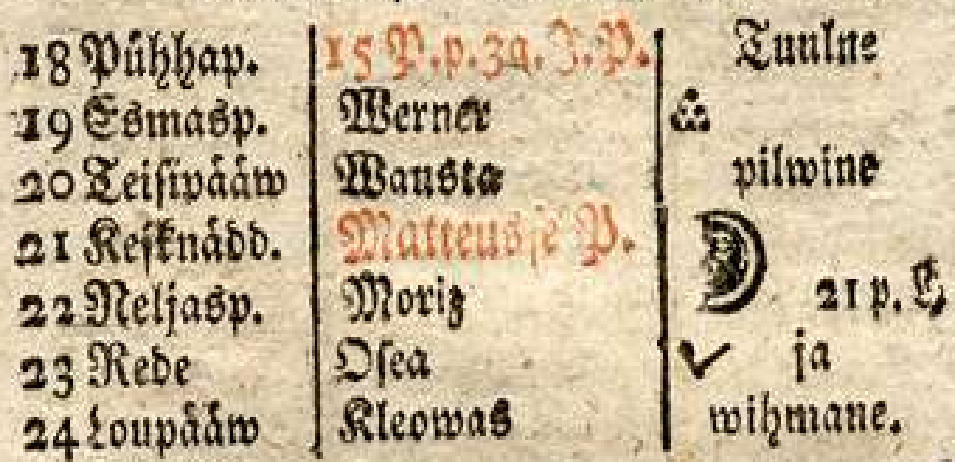 18 Pühhap. 15 P. p. 3a. J. P. Tuulne
19 Esmasp. Werner
20 Teisipääw Wausta pilwine
21 Kesknädd. Matteusse P.
22 Neljasp. Moriz 21 p. H
23 Rede Osea ja
24 Loupääw Kleowas wihmane.